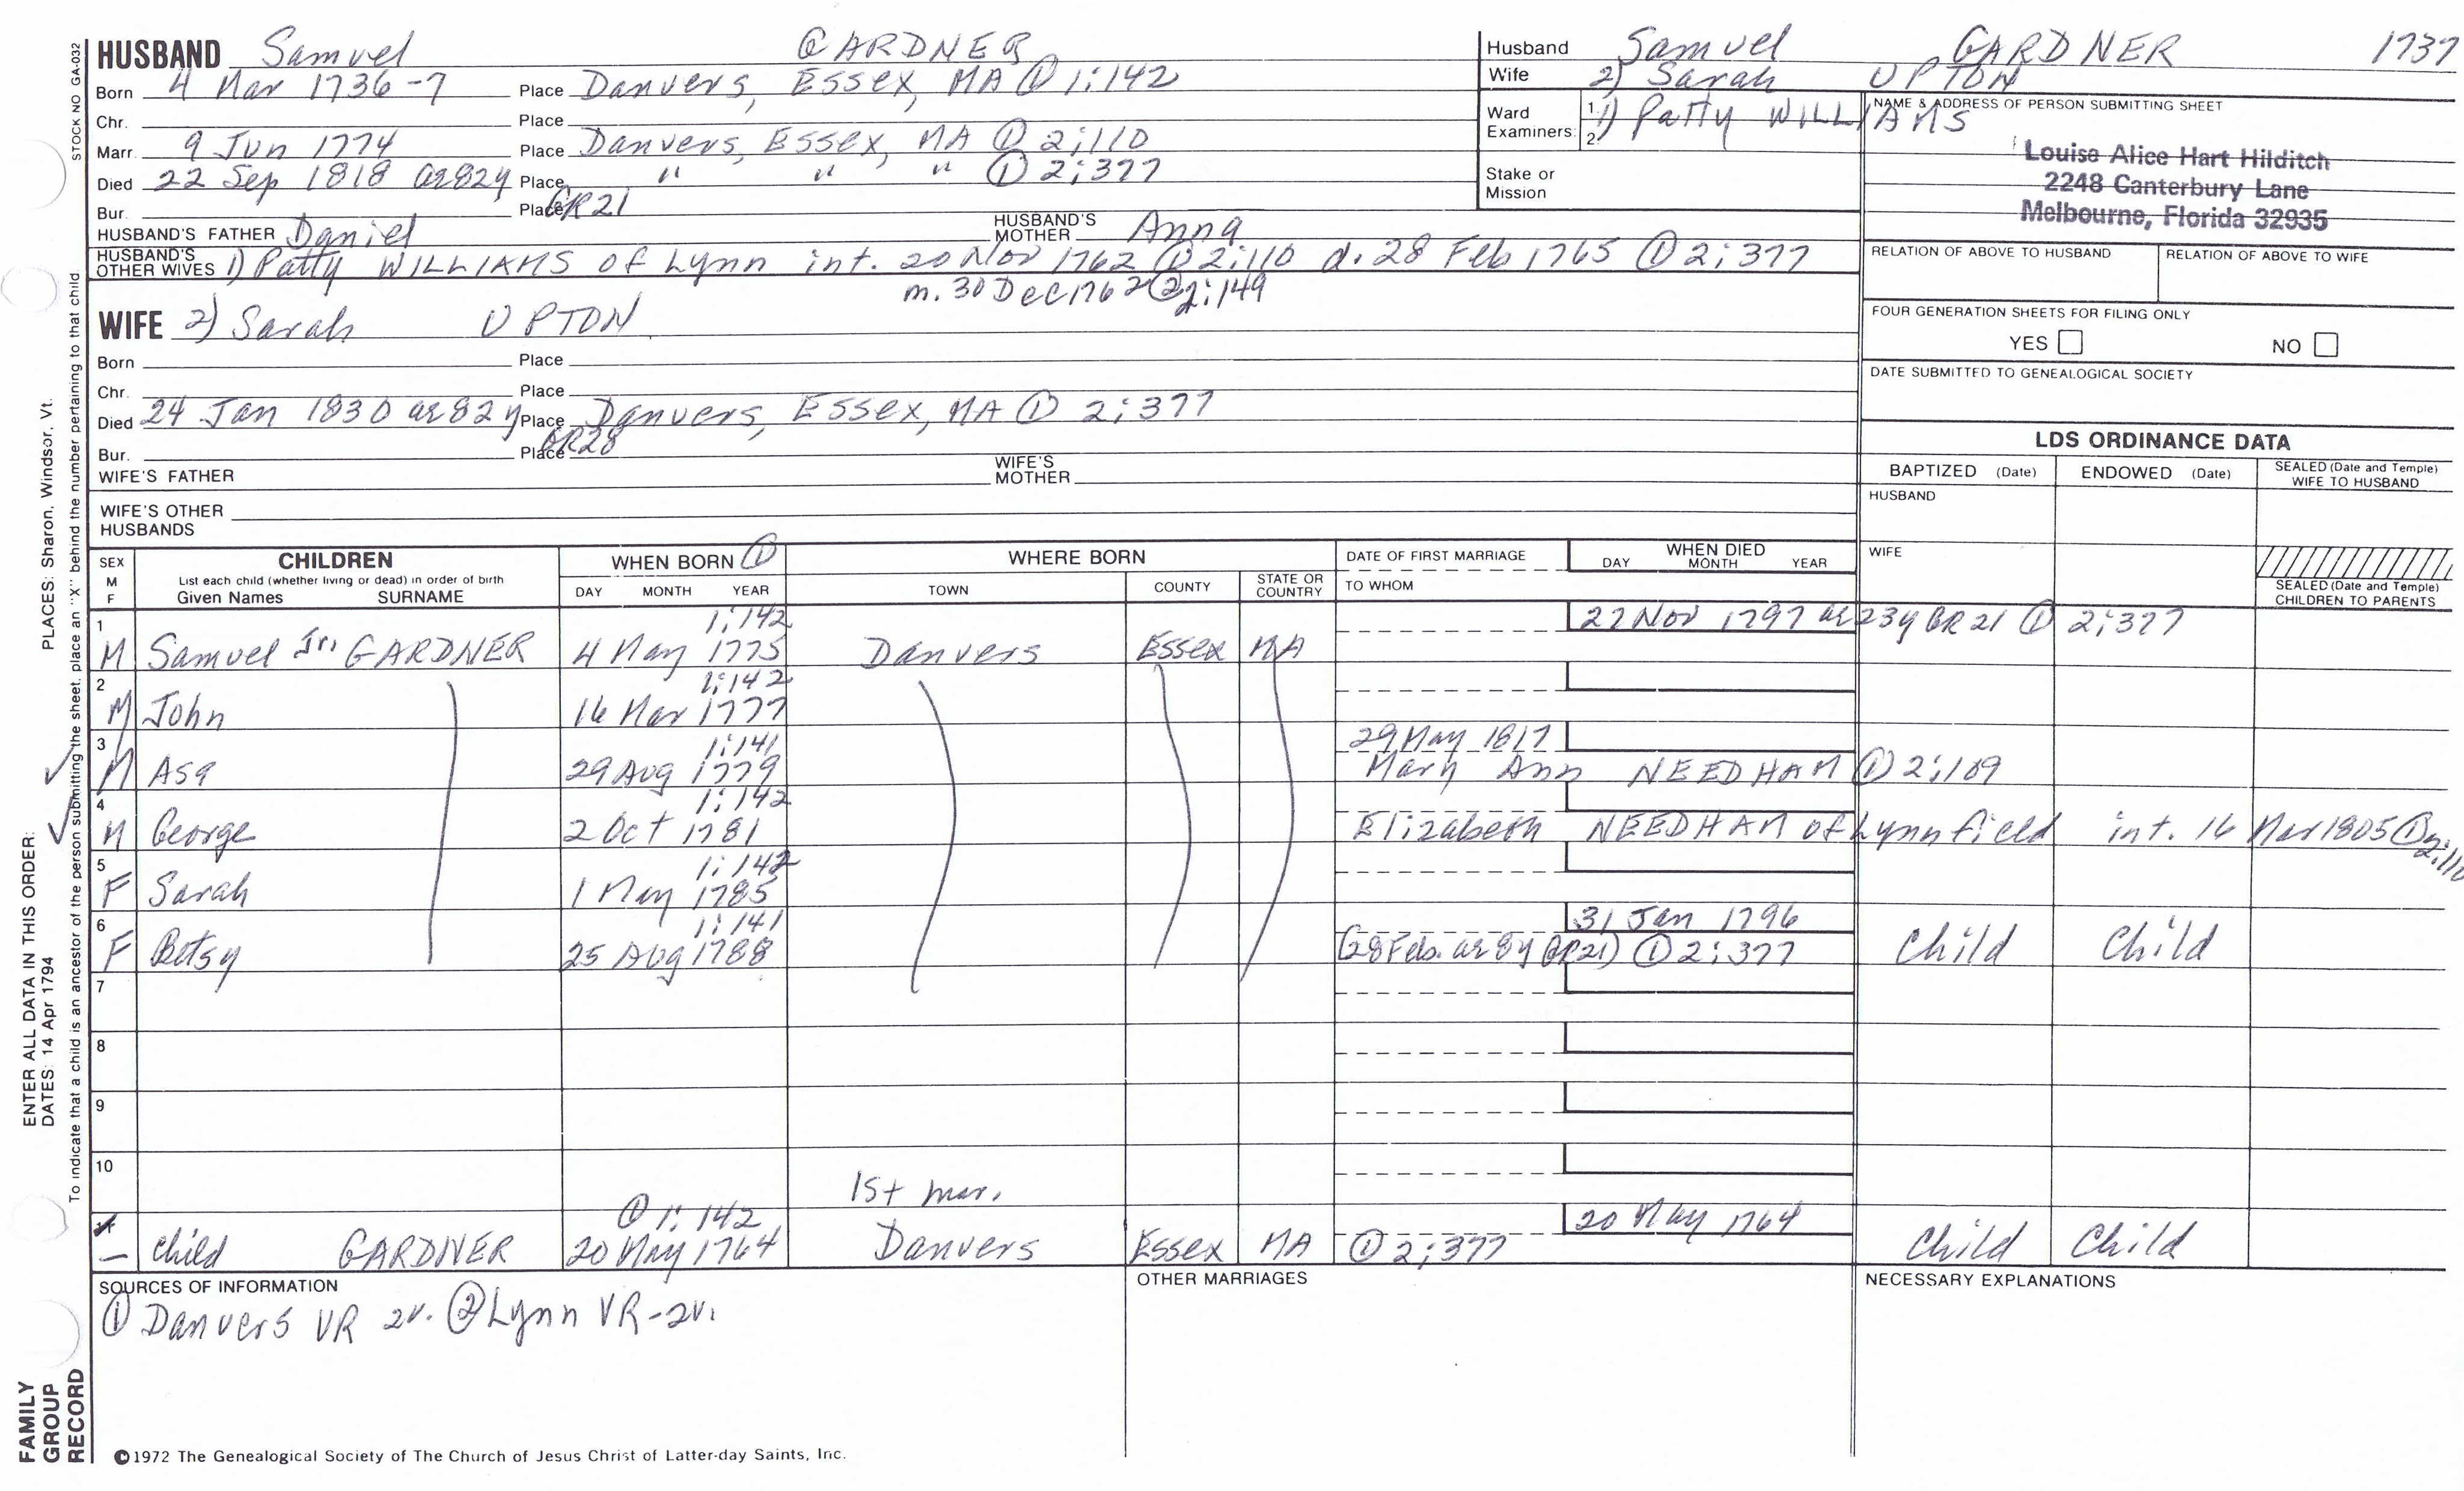 STOCK NO GA-032
HUSBAND Samuel GARDNER
Born 4 Mar 1736-7 Place Danvers, Essex, MA ① 1:142
Chr. Place
Marr. 9 Jun 1774 Place Danvers, Essex, MA ① 2:110
Died 22 Sep 1818 ae82y Place " " " ① 2:377
Bur. Place GR21
HUSBAND'S FATHER Daniel HUSBAND'S MOTHER Anna
HUSBAND'S OTHER WIVES 1) Patty WILLIAMS of Lynn int. 20 Nov 1762 ① 2:110 d. 28 Feb 1765 ① 2:377
m. 30 Dec 1762 ② 2:149
WIFE 2) Sarah UPTON
Born Place
Chr. Place
Died 24 Jan 1830 ae82y Place Danvers, Essex, MA ① 2:377
Bur. Place GR28
WIFE'S FATHER WIFE'S MOTHER
WIFE'S OTHER HUSBANDS
Husband Samuel GARDNER 1737
Wife 2) Sarah UPTON
Ward Examiners: 1. 2. 1) Patty WILLIAMS
Stake or Mission
NAME & ADDRESS OF PERSON SUBMITTING SHEET
Louise Alice Hart Hilditch
2248 Canterbury Lane
Melbourne, Florida 32935
RELATION OF ABOVE TO HUSBAND RELATION OF ABOVE TO WIFE
FOUR GENERATION SHEETS FOR FILING ONLY
YES NO
DATE SUBMITTED TO GENEALOGICAL SOCIETY
LDS ORDINANCE DATA
BAPTIZED (Date) ENDOWED (Date) SEALED (Date and Temple) WIFE TO HUSBAND
HUSBAND
WIFE
SEALED (Date and Temple) CHILDREN TO PARENTS
SEX M F CHILDREN WHEN BORN ① WHERE BORN DATE OF FIRST MARRIAGE WHEN DIED
List each child (whether living or dead) in order of birth
Given Names SURNAME DAY MONTH YEAR TOWN COUNTY STATE OR COUNTRY TO WHOM DAY MONTH YEAR
1 1:142 27 Nov 1797 ae23y GR21 ① 2:377
M Samuel Jr. GARDNER 4 May 1775 Danvers Essex MA
2 1:142
M John 16 Mar 1777
3 1:141 29 May 1817
M Asa 29 Aug 1779 Mary Ann NEEDHAM ① 2:109
4 1:142
M George 2 Oct 1781 Elizabeth NEEDHAM of Lynnfield int. 16 Mar 1805 ① 2:110
5 1:142
F Sarah 1 May 1785
6 1:141 31 Jan 1796
F Betsy 25 Aug 1788 (28 Feb. ae 8y GR21) ① 2:377 Child Child
7
8
9
10 1st mar.
① 1:142 20 May 1764
— child GARDNER 20 May 1764 Danvers Essex MA ① 2:377 Child Child
SOURCES OF INFORMATION OTHER MARRIAGES NECESSARY EXPLANATIONS
① Danvers VR 2v. ② Lynn VR-2v.
©1972 The Genealogical Society of The Church of Jesus Christ of Latter-day Saints, Inc.
FAMILY GROUP RECORD
ENTER ALL DATA IN THIS ORDER:
DATES: 14 Apr 1794 PLACES: Sharon, Windsor, Vt.
To indicate that a child is an ancestor of the person submitting the sheet, place an "X" behind the number pertaining to that child.